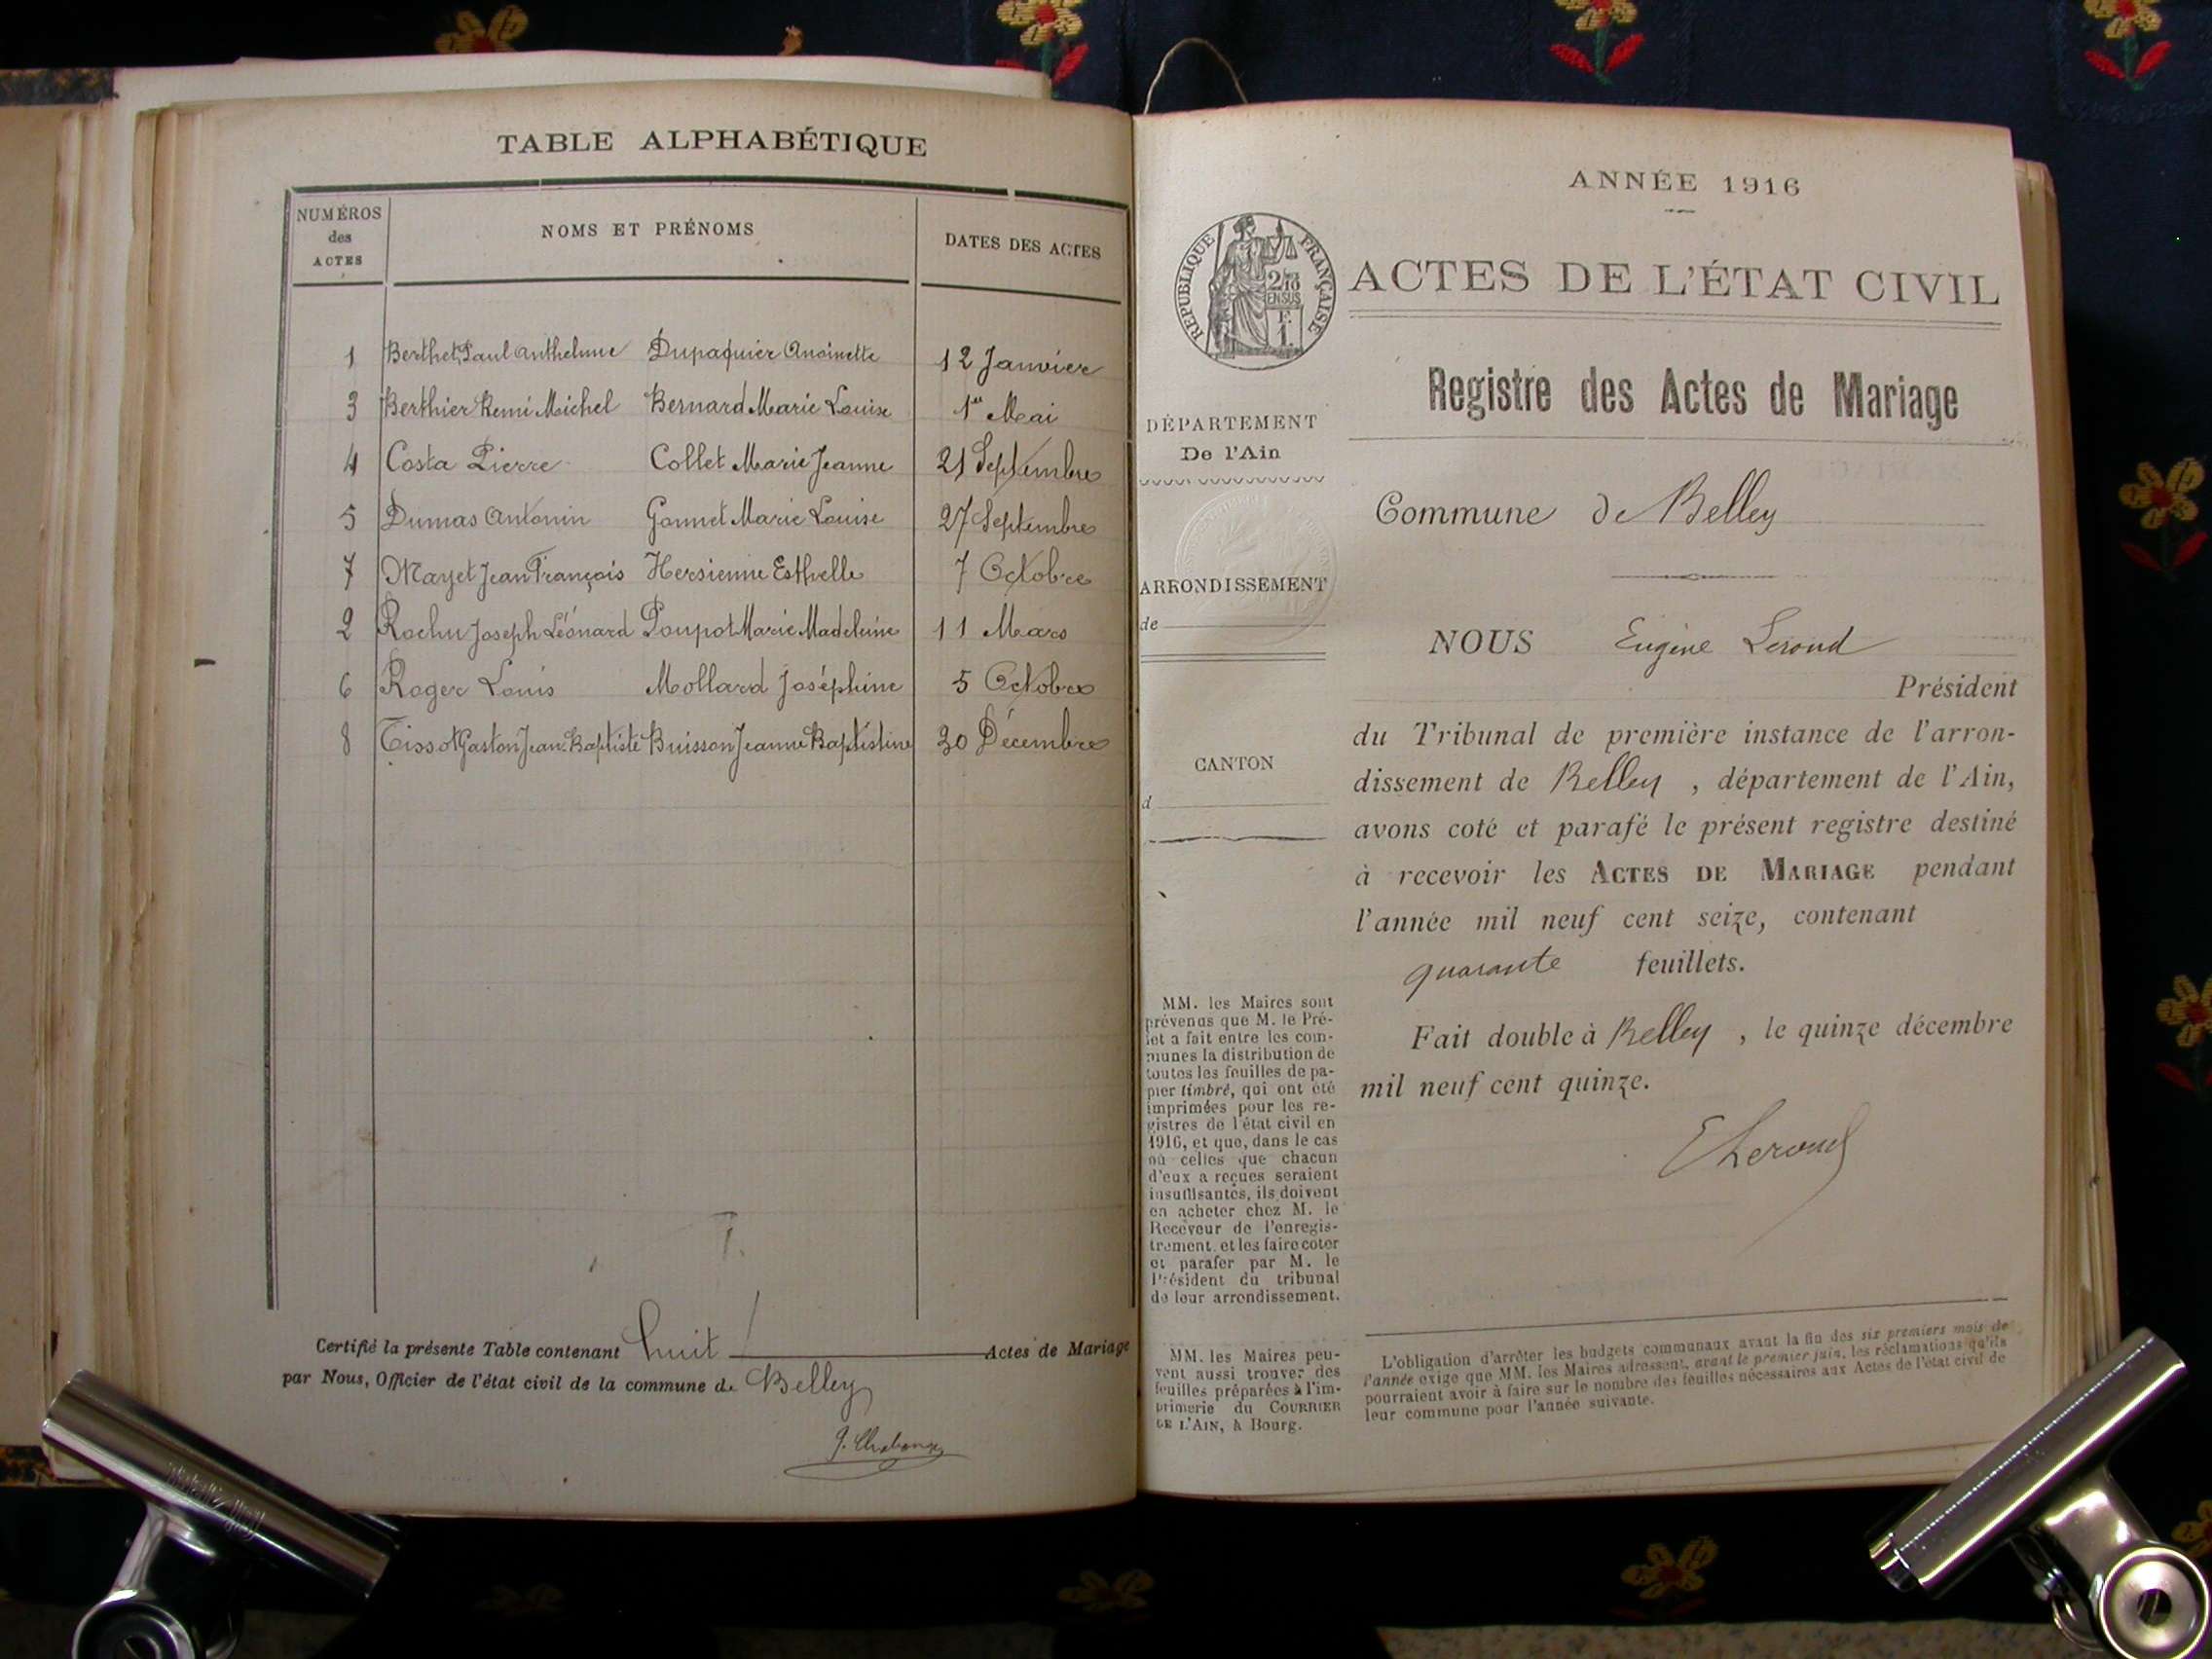 TABLE ALPHABÉTIQUE
NUMÉROS des ACTES NOMS ET PRÉNOMS DATES DES ACTES
1 Berthet Paul Anthelme Dupaquier Antoinette 12 Janvier
3 Berthier Remi Michel Bernard Marie Louise 1er Mai
4 Costa Pierre Collet Marie Jeanne 21 Septembre
5 Dumas Antonin Gonnet Marie Louise 27 Septembre
7 Mayet Jean François Hersienne Esthelle 7 Octobre
2 Rochu Joseph Léonard Poupot Marie Madeleine 11 Mars
6 Roger Louis Mollard Joséphine 5 Octobre
8 Tissot Gaston Jean Baptiste Buisson Jeanne Baptistine 30 Décembre
Certifié la présente Table contenant huit Actes de Mariage
par Nous, Officier de l'état civil de la commune de Belley
ANNÉE 1916
RÉPUBLIQUE FRANÇAISE
2/10
EN SUS
F.
1.
ACTES DE L'ÉTAT CIVIL
Registre des Actes de Mariage
DÉPARTEMENT
De l'Ain
ARRONDISSEMENT
de
CANTON
d
MM. les Maires sont
prévenus que M. le Pré-
fet a fait entre les com-
munes la distribution de
toutes les feuilles de pa-
pier timbré, qui ont été
imprimées pour les re-
gistres de l'état civil en
1916, et que, dans le cas
où celles que chacun
d'eux a reçues seraient
insuffisantes, ils doivent
en acheter chez M. le
Receveur de l'enregis-
trement, et les faire coter
et parafer par M. le
Président du tribunal
de leur arrondissement.
MM. les Maires peu-
vent aussi trouver des
feuilles préparées à l'im-
primerie du COURRIER
DE L'AIN, à Bourg.
Commune de Belley
NOUS Eugène Lerond
Président
du Tribunal de première instance de l'arron-
dissement de Belley , département de l'Ain,
avons coté et parafé le présent registre destiné
à recevoir les ACTES DE MARIAGE pendant
l'année mil neuf cent seize, contenant
quarante feuillets.
Fait double à Belley , le quinze décembre
mil neuf cent quinze.
E Lerond
L'obligation d'arrêter les budgets communaux avant la fin des six premiers mois de
l'année exige que MM. les Maires adressent, avant le premier juin, les réclamations qu'ils
pourraient avoir à faire sur le nombre des feuilles nécessaires aux Actes de l'état civil de
leur commune pour l'année suivante.